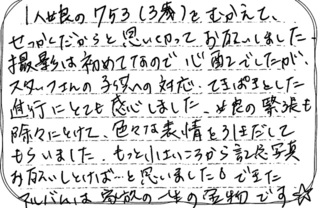 1人娘の753（3歳）をむかえて、
せっかくだからと思い切ってお互いしました.
撮影は初めてなので心配でしたが、
スタッフさんの子供への対応、てきぱきとした
進行にとても感心しました. 娘の緊張も
除々にとけて、色々な表情を引きだして
もらいました. もっと小さいころから記念写真
お願いしとけば…と思いました。できた
アルバムは家族の一生の宝物です☆